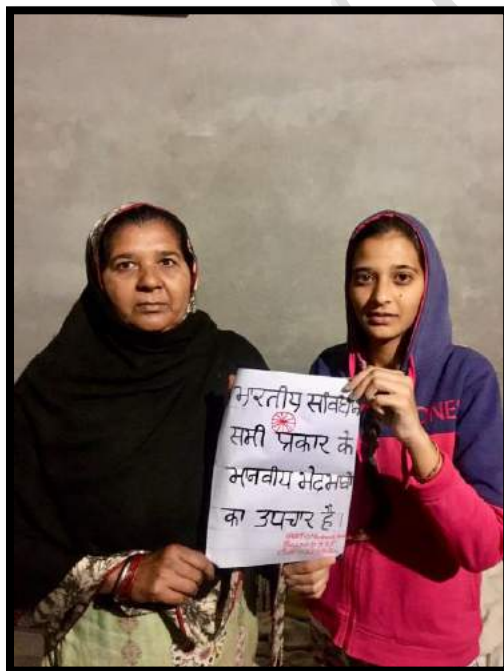 भारतीय संविधान
सभी प्रकार के
मानवीय भेदभावों
का उपचार है।
ONE